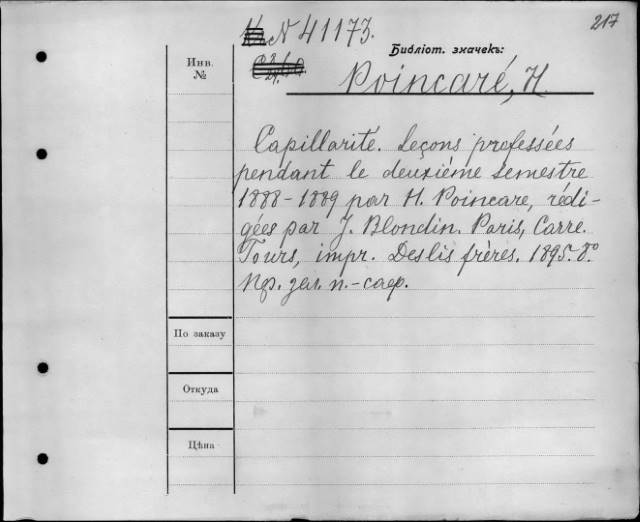 217
N 41173.
Библіот. значекъ:
Инв.
№
Poincaré, H.
Capillarité. Leçons professées
pendant le deuxiéme semestre
1888-1889 par H. Poincare, rédi-
gées par J. Blondin. Paris, Carre.
Tours, impr. Deslis frères. 1895. 8°
По заказу
Откуда
Цѣна